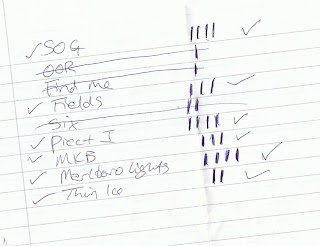 SOG
OOR
Find me
Fields
Six
Piect I
MKB
Marlboro Lights
Thin Ice